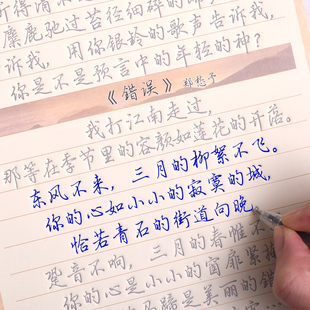 听得清
麋鹿驰过苔径细碎的
诉我，用你银铃的歌声告诉我，
你是不是预言中的年轻的神？
《错误》 郑愁予
我打江南走过，
那等在季节里的容颜如莲花的开落。
东风不来，三月的柳絮不飞。
你的心如小小的寂寞的城，
恰若青石的街道向晚。
跫音不响，三月的春帷不
你的心是小小的窗扉紧掩
蹄是美丽的错